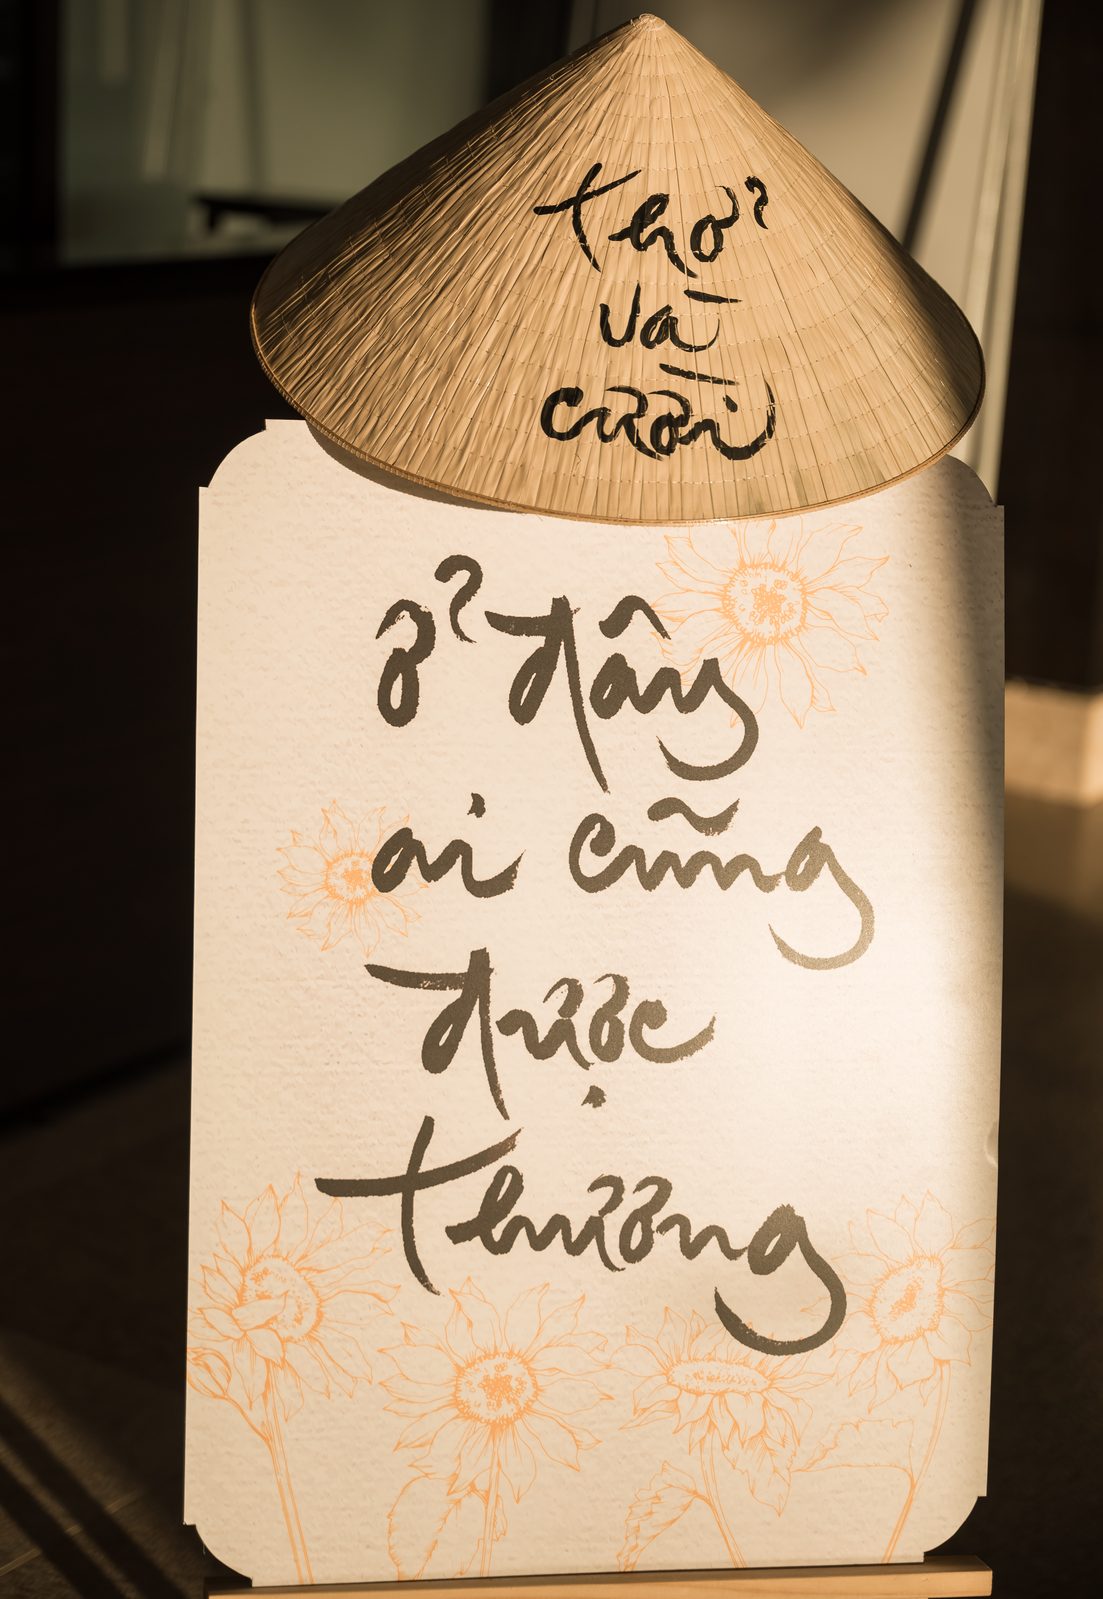 thở
và
cười
ở đây
ai cũng
được
thương